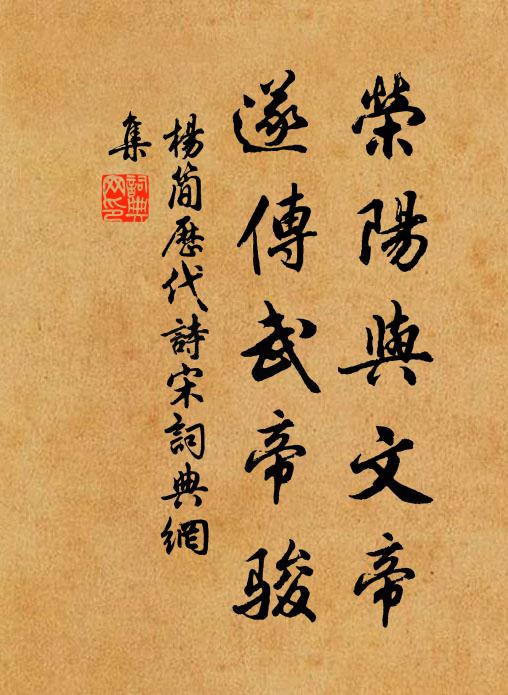 榮陽與文帝
遂傳武帝駿
楊簡歷代詩宋詞典網
集
詞典网印